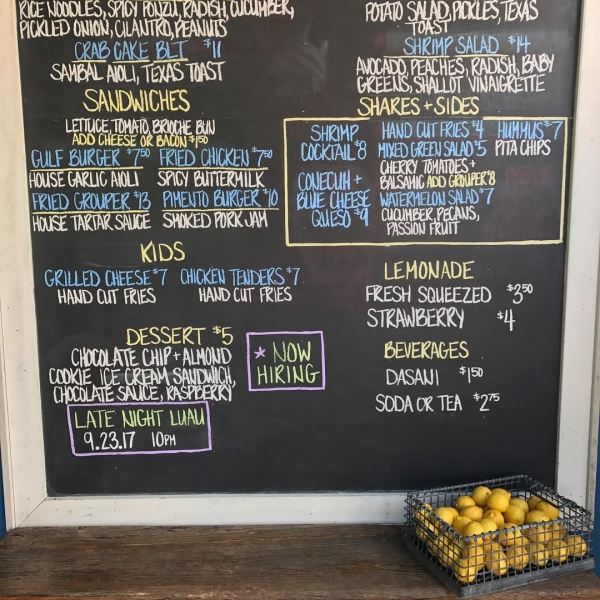 RICE NOODLES, SPICY PONZU, RADISH, CUCUMBER,
PICKLED ONION, CILANTRO, PEANUTS
CRAB CAKE BLT $11
SAMBAL AIOLI, TEXAS TOAST
SANDWICHES
LETTUCE, TOMATO, BRIOCHE BUN
ADD CHEESE OR BACON $1.50
GULF BURGER $7.50 FRIED CHICKEN $7.50
HOUSE GARLIC AIOLI SPICY BUTTERMILK
FRIED GROUPER $13 PIMENTO BURGER $10
HOUSE TARTAR SAUCE SMOKED PORK JAM
KIDS
GRILLED CHEESE $7 CHICKEN TENDERS $7
HAND CUT FRIES HAND CUT FRIES
DESSERT $5
CHOCOLATE CHIP + ALMOND
COOKIE ICE CREAM SANDWICH,
CHOCOLATE SAUCE, RASPBERRY
* NOW
HIRING
LATE NIGHT LUAU
9.23.17 10PM
POTATO SALAD, PICKLES, TEXAS
TOAST
SHRIMP SALAD $14
AVOCADO, PEACHES, RADISH, BABY
GREENS, SHALLOT VINAIGRETTE
SHARES + SIDES
SHRIMP
COCKTAIL $8
CONECUH +
BLUE CHEESE
QUESO $9
HAND CUT FRIES $4
MIXED GREEN SALAD $5
CHERRY TOMATOES +
BALSAMIC ADD GROUPER $8
WATERMELON SALAD $7
CUCUMBER, PECANS,
PASSION FRUIT
HUMMUS $7
PITA CHIPS
LEMONADE
FRESH SQUEEZED $3.50
STRAWBERRY $4
BEVERAGES
DASANI $1.50
SODA OR TEA $2.75